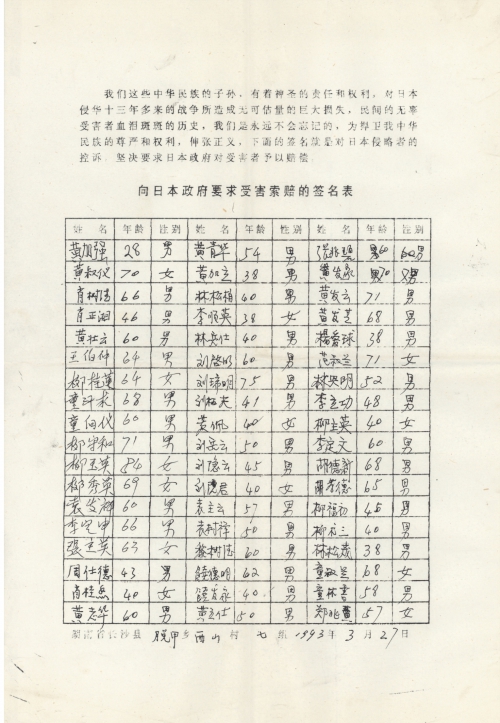 我们这些中华民族的子孙，有着神圣的责任和权利，对日本
侵华十三年多来的战争所造成无可估量的巨大损失，民间的无辜
受害者血泪斑斑的历史，我们是永远不会忘记的，为捍卫我中华
民族的尊严和权利，伸张正义，下面的签名就是对日本侵略者的
控诉，坚决要求日本政府对受害者予以赔偿。
向日本政府要求受害索赔的签名表
姓名 年龄 性别 姓名 年龄 性别 姓名 年龄 性别
黄加强 28 男 黄青华 54 男 男
黄叔仪 70 女 黄加立 38 男 黄发泉
66 男 林松柏 40 男 黄发云 71 男
肖正湘 46 男 李顺英 38 女 黄发芝 68 男
黄壮云 60 男 林长仕 40 男 杨春球 38 男
王伯仲 64 男 刘启明 60 男 范淑兰 71 女
柳桂莲 64 女 刘瑞明 75 男 林奥明 52 男
68 男 41 男 李立功 48 男
童伯仪 60 男 黄佩 40 女 柳立英 40 女
柳宇和 71 男 刘岳云 50 男 李定文 60 男
柳玉英 84 女 45 男 胡德新 68 男
柳秀英 69 女 40 女 65 男
袁发湘 60 男 袁立云 57 男 柳福初 45 男
66 男 袁树泽 50 男 柳石三 40 男
张玉英 63 女 60 男 林松茂 38 男
周仕德 43 男 陆德明 62 男 童淑兰 68 女
肖桂 40 女 陆发永 40 男 童林書 58 男
黄志华 60 男 黄立仕 50 男 郑兆 57 女
湖南省长沙县 脱甲乡 西山村 七组 1993年3月27日